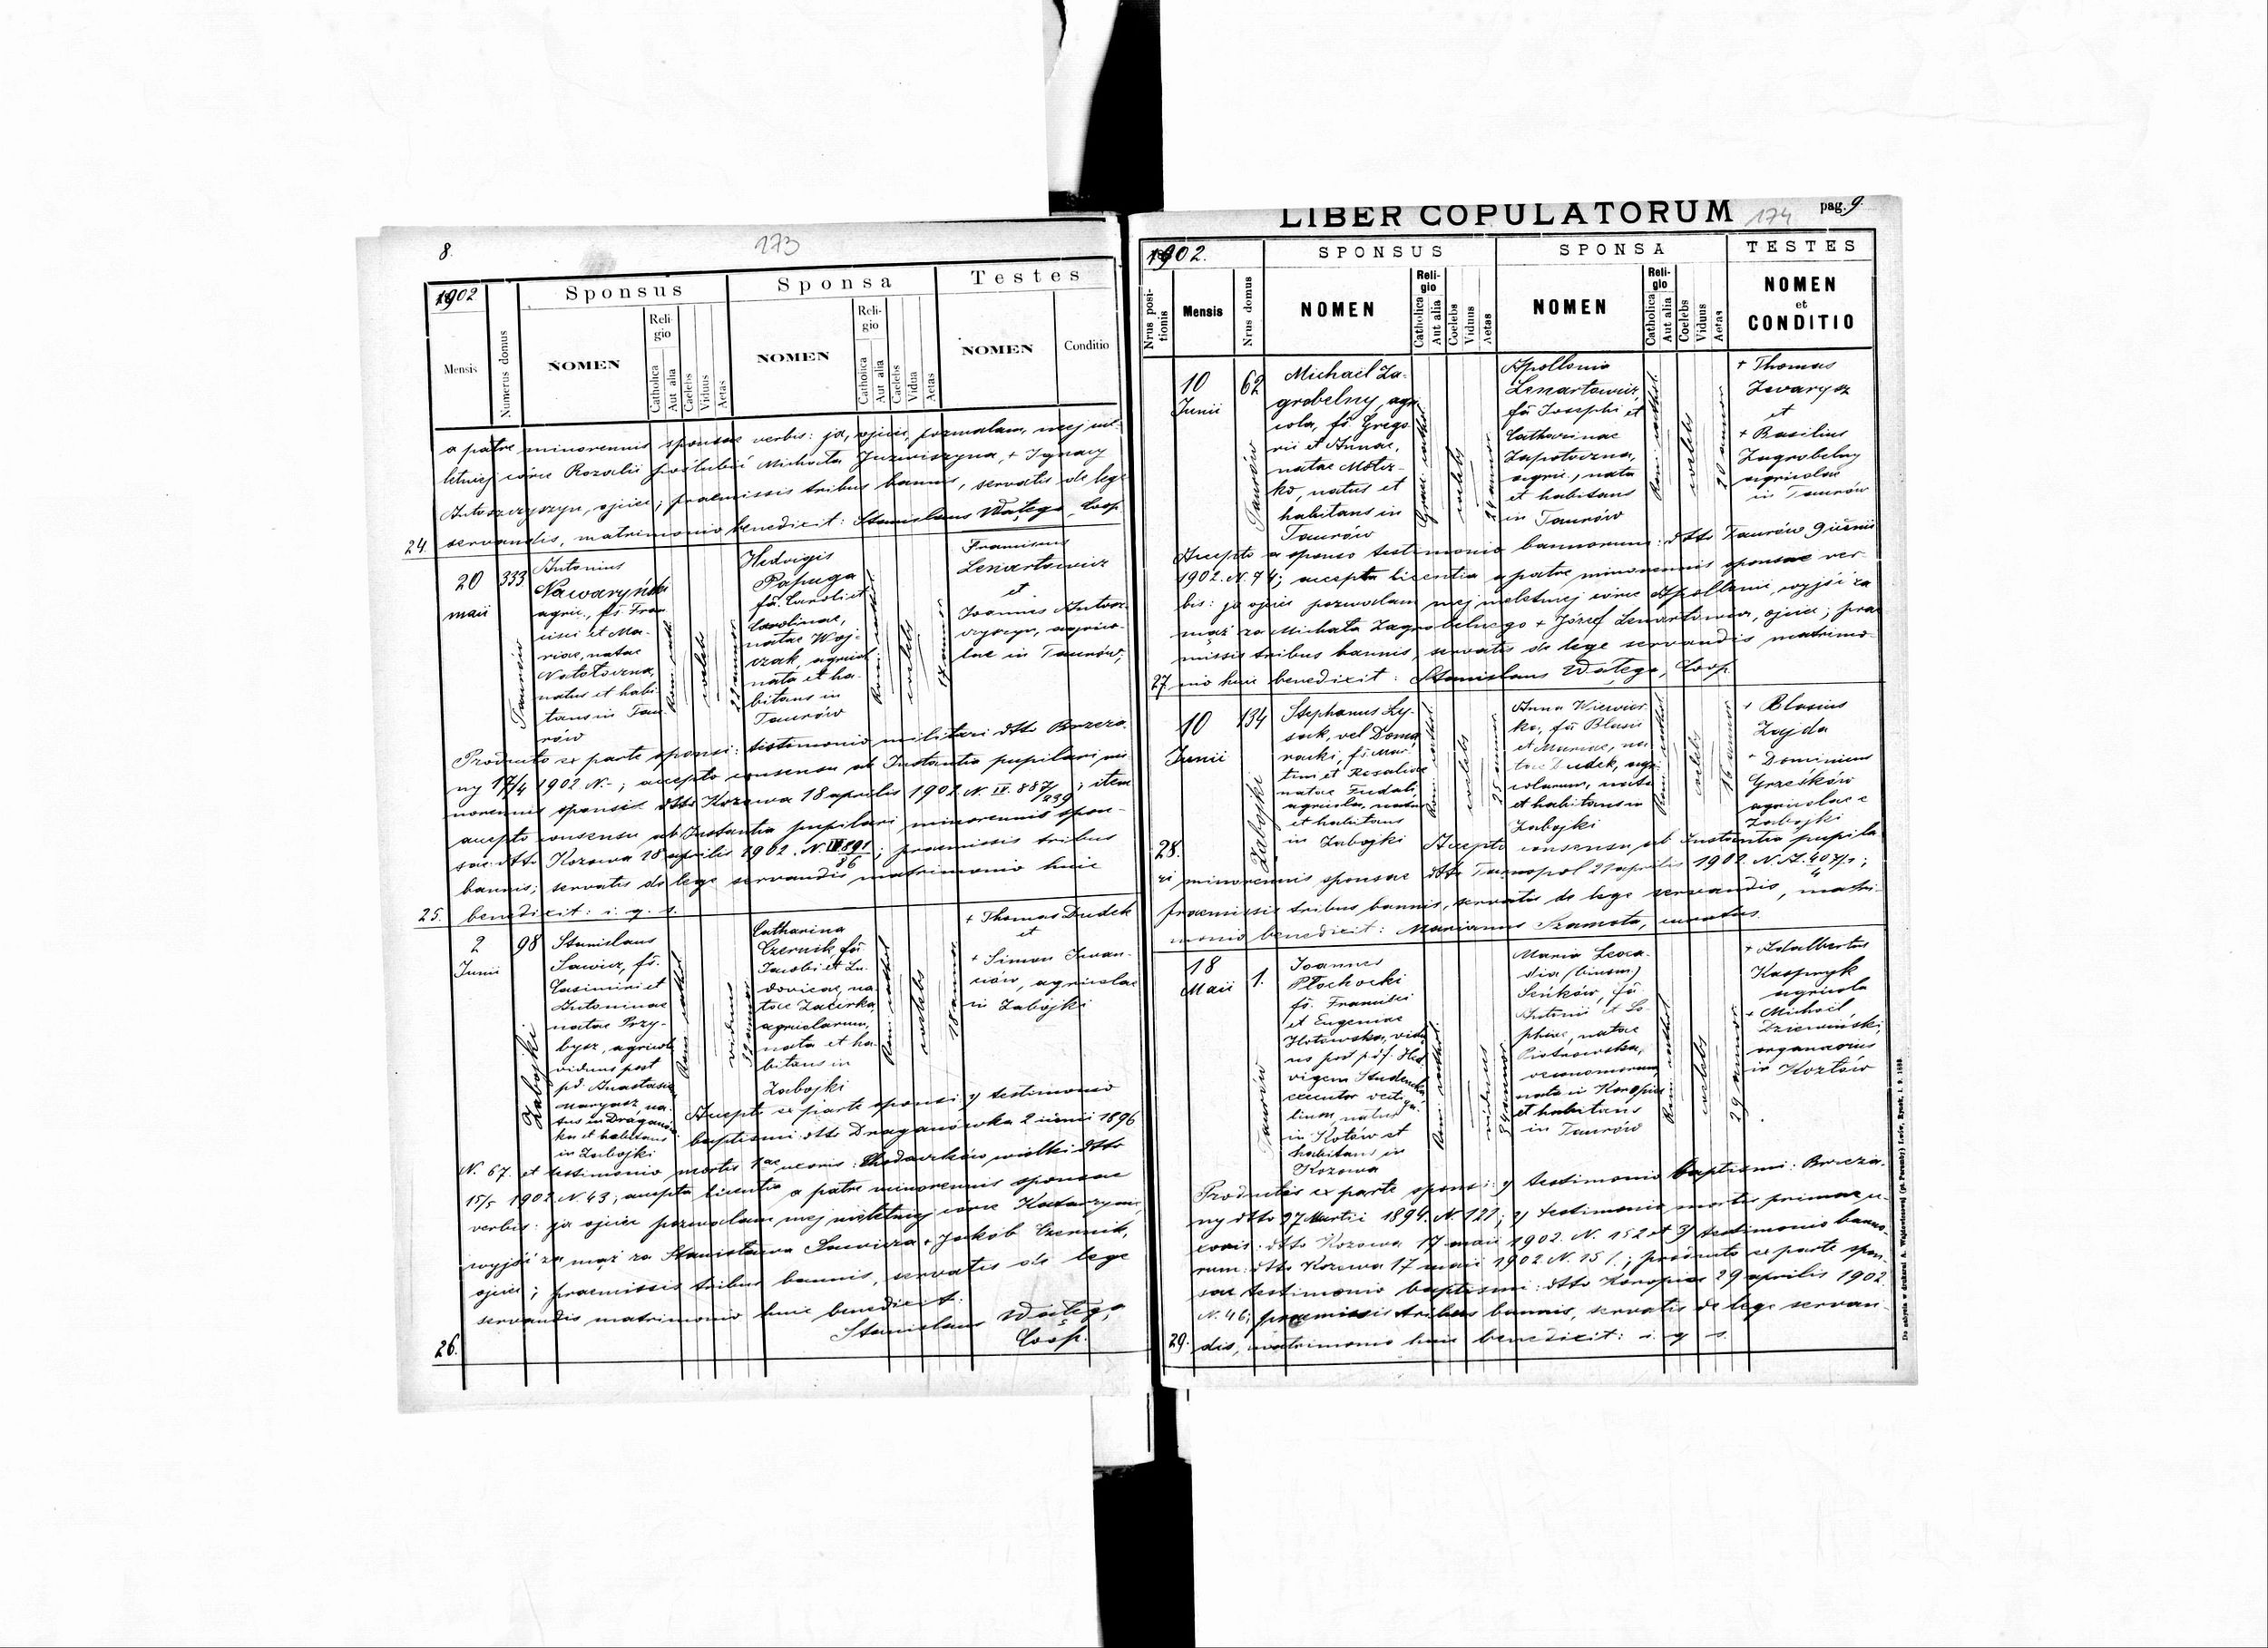 8.
173
1902
Sponsus
Sponsa
Testes
Mensis
Numerus domus
NOMEN
Religio
Catholica
Aut alia
Caelebs
Viduus
Aetas
NOMEN
Religio
Catholica
Aut alia
Caelebs
Vidua
Aetas
NOMEN
Conditio
a patre minorennis sponsae verbis: ja, ojciec, pozwalam, mej nie-
letniej córce Rozalii poślubić Michała + Ignacy
ojciec; praemissis tribus bannis, servatis de lege
24. servandis, matrimonio benedixit: Stanislaus Wałęga, Coop.
20
maii
333
Taurów
Antonius
Nawaryński
agric., fs. Fran-
cisci et Ma-
riae, natae
natus et habi-
tans in Tau-
rów
Rom. cath.
coelebs
22 annor.
Hedvigis
Papuga
fa. Caroli et
Carolinae,
natae Woj-
czak, agricol.
nata et ha-
bitans in
Taurów
Rom. cathol.
coelebs
17 annor.
Franciscus
Lenartowicz
et
Joannes Antosz-
czyszyn, agrico-
lae in Taurów;
Producto ex parte sponsi: testimonio militari dtto Brzeża-
ny 17/4 1902 N.-; accepto consensu ab Instantia pupilari mi-
norennis sponsi dtto Kozowa 18 aprilis 1902 N. IV. 887/239; item
accepto consensu ab Instantia pupilari minorennis spon-
sae dtto Kozowa 18 aprilis 1902. N. IV 891/86; praemissis tribus
bannis; servatis de lege servandis matrimonio huic
25. benedixit: i. q. s.
2
Junii
98
Zabojki
Stanislaus
Sawicz, fs.
Casimiri et
Antoninae
natae Przy-
bysz, agricola
viduus post
pd. Anastasia
na-
tus in Draganów-
ka et habitans
in Zabojki
Rom. cathol.
viduus
32 annor.
Catharina
Czernik, fa
Jacobi et Lu-
dovicae, na-
tae Zacerka,
agricolarum,
nata et ha-
bitans in
Zabojki
Rom. cathol.
coelebs
18 annor.
+ Thomas Dudek
et
+ Simon Iwan-
ciów, agricolae
in Zabojki
Accepto ex parte sponsi: 1) testimonio
baptismi: dtto Draganówka 2 iunii 1896
N. 67. et testimonio mortis 1ae uxoris: Chodaczków wielki dtto
15/5 1902 N. 43; accepta licentia a patre minorennis sponsae
verbis: ja ojciec pozwalam mej nieletniej córce Katarzynie,
wyjść za mąż za Stanisława Sawicza + Jakób Czernik,
ojciec; praemissis tribus bannis, servatis de lege
servandis matrimonio huic benedixit:
Stanislaus Wałęga,
26. Coop.
LIBER COPULATORUM
174
pag. 9.
1902.
SPONSUS
SPONSA
TESTES
Nrus positionis
Mensis
Nrus domus
NOMEN
Religio
Catholica
Aut alia
Coelebs
Viduus
Aetas
NOMEN
Religio
Catholica
Aut alia
Coelebs
Viduus
Aetas
NOMEN
et
CONDITIO
10
Junii
62
Taurów
Michaël Za-
grobelny, agri-
cola, fs Grego-
rii et Annae,
natae Motz-
ko, natus et
habitans in
Taurów
Graec. cathol.
coelebs
24 annor.
Apollonia
Lenartowicz,
fa Josephi et
Catharinae
Zapotoczna,
agric., nata
et habitans
in Taurów
Rom. cathol.
coelebs
20 annor.
+ Thomas
Zwarysz
et
+ Basilius
Zagrobelny
agricolae
in Taurów
Accepto a sponso testimonio bannorum: dtto Taurów 9 iunii
1902. N. 74; accepta licentia a patre minorennis sponsae ver-
bis: ja ojciec pozwalam mej nieletniej córce Apollonii, wyjść za
mąż za Michała Zagrobelnego + Józef Lenartowicz, ojciec; prae-
missis tribus bannis, servatis de lege servandis matrimo-
27. nio huic benedixit: Stanislaus Wałęga, Coop.
10
Junii
134
Zabojki
Stephanus Ly-
sack, vel Doma-
racki, fs. Mar-
tini et Rosaliae
natae Fudali,
agricola, natus
et habitans
in Zabojki
Rom. cathol.
coelebs
25 annor.
Anna Wiewiór-
ka, fa Blasii
et Mariae, na-
tae Dudek, agri-
colarum, nata
et habitans in
Zabojki
Rom. cathol.
coelebs
16 annor.
+ Blasius
Zajda
+ Dominicus
Grześków
agricolae e
Zabojki
28. Accepto consensu ab Instantia pupila-
ri minorennis sponsae dtto Tarnopol 21 aprilis 1902 N. A. 407/1;
4
praemissis tribus bannis, servatis de lege servandis, matri-
monio benedixit: Marianus Szamota, curatus
18
Maii
1.
Taurów
Joannes
Płochocki
fs. Francisci
et Eugeniae
Hotowska, vidu-
us post pdf. Hed-
vigem Studencka
executor vectiga-
lium, natus
in Kotów et
habitans in
Kozowa
Rom. cathol.
viduus
34 annor.
Maria Leoca-
dia (binom)
Seńków, fa
Antonii et So-
phiae, natae
Piotrowska,
oeconomorum,
nata in Koropiec
et habitans
in Taurów
Rom. cathol.
coelebs
29 annor.
+ Adalbertus
Kasprzyk
agricola
+ Michaël
Dziewiński,
organarius
in Kozłów
Productis ex parte sponsi: 1) testimonio baptismi: Brzeża-
ny dtto 27 Martii 1894. N. 121; 2) testimonio mortis primae u-
xoris: dtto Kozowa 17 maii 1902. N. 152 et 3) testimonio banno-
rum: dtto Kozowa 17 maii 1902 N. 151.; producto ex parte spon-
sae testimonio baptismi: dtto Koropiec 29 aprilis 1902
N. 46; praemissis tribus bannis, servatis de lege servan-
29. dis, matrimonio huic benedixit: i. q. s.